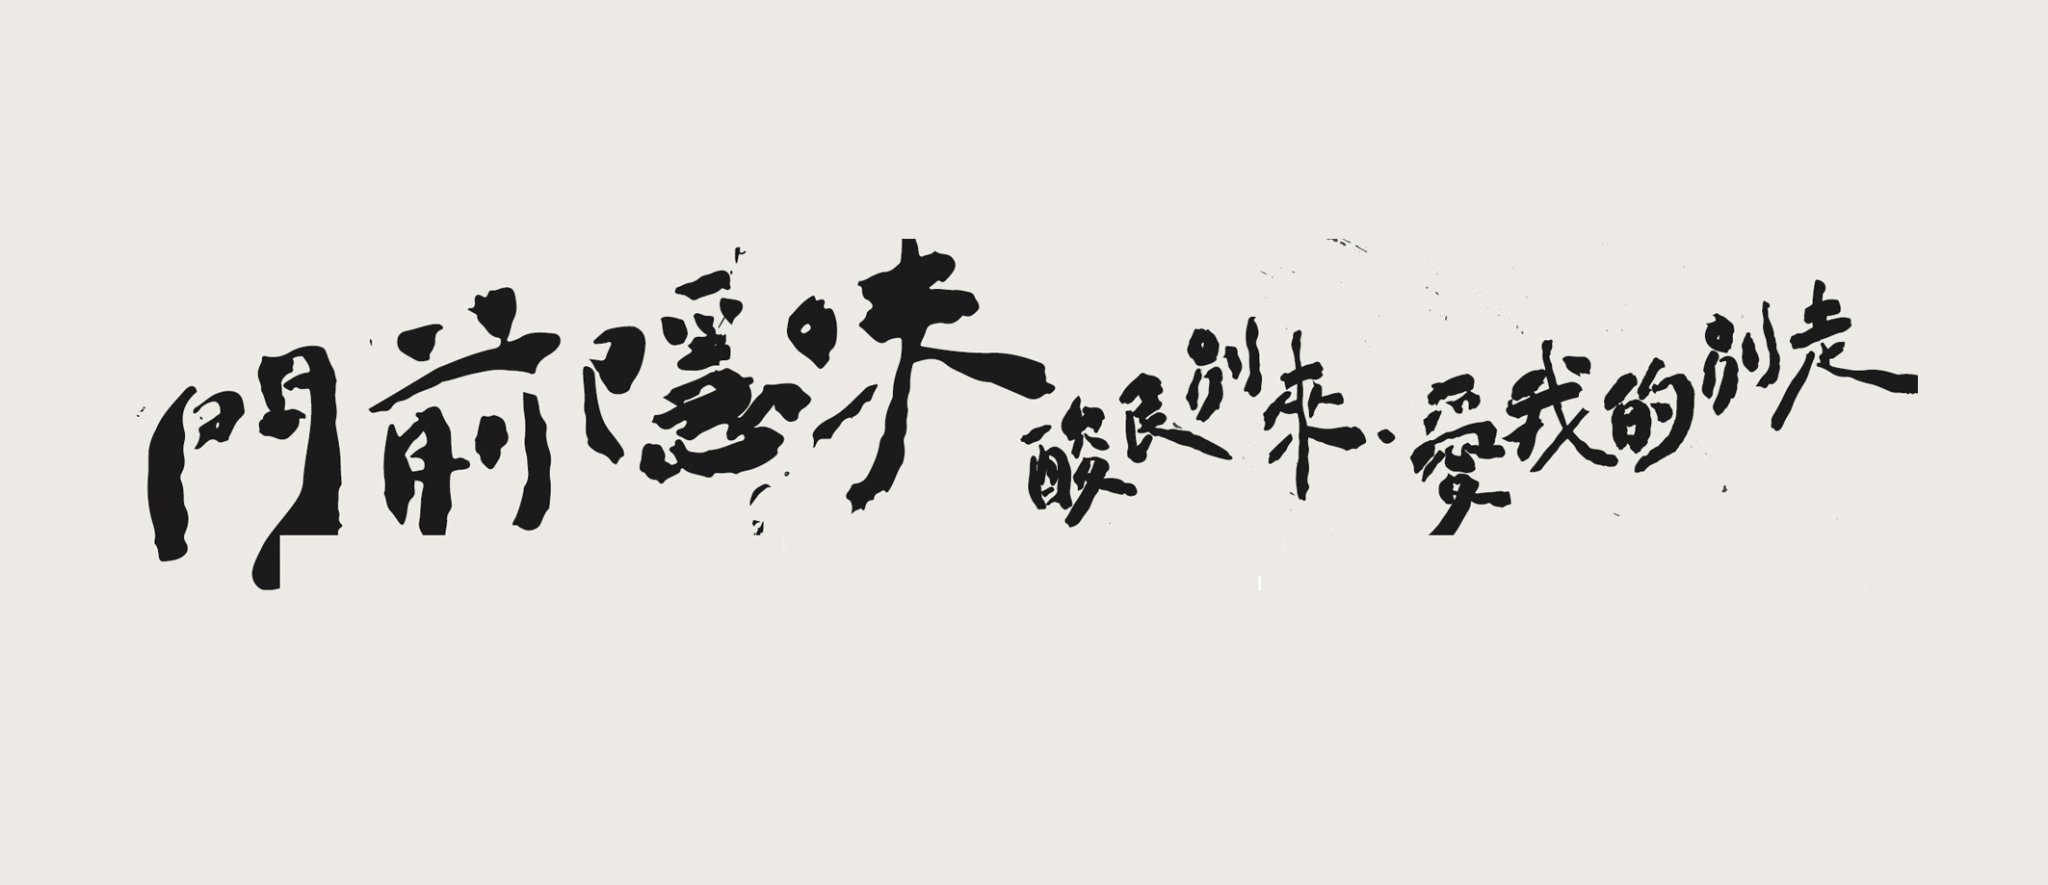 門前隱味酸民別來·愛我的別走